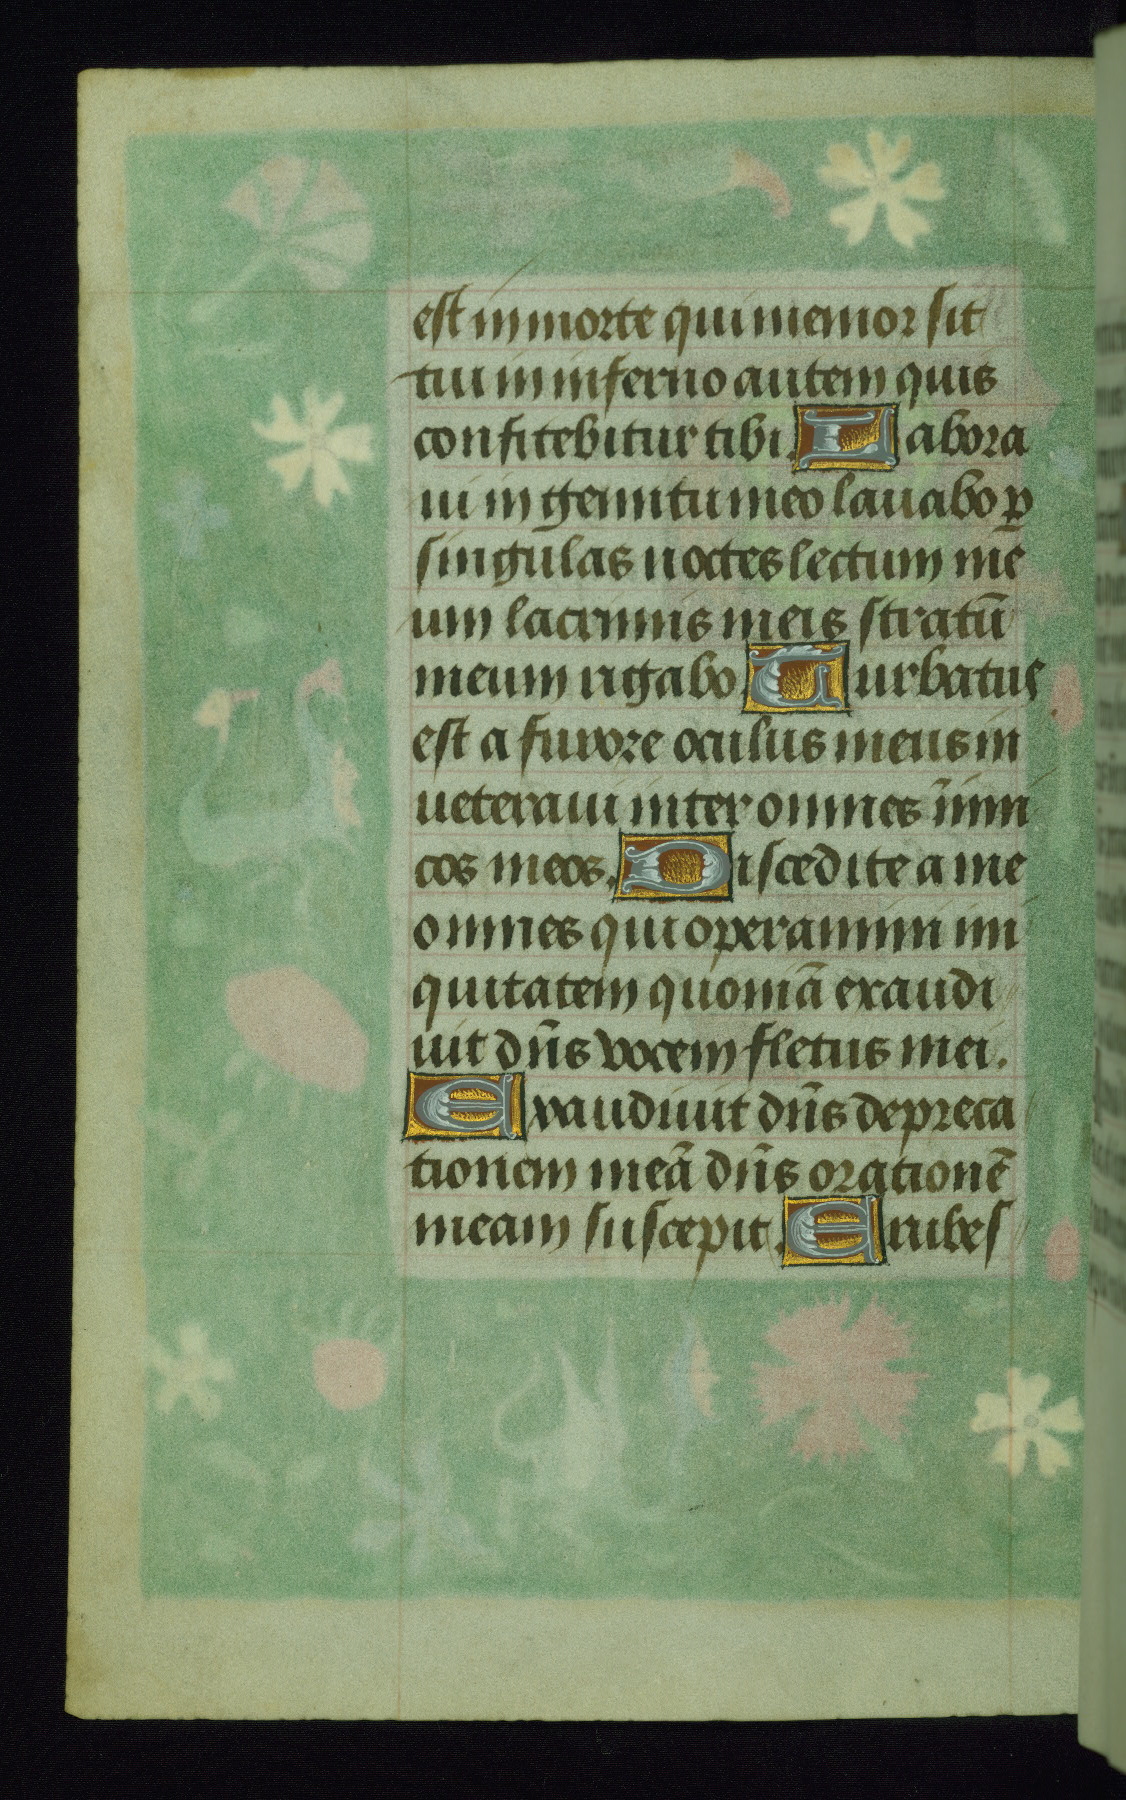 est in morte qui memor sit
tui in inferno autem quis
confitebitur tibi. Labora
ui in gemitu meo lauabo ꝑ
singulas noctes lectum me
um lacrimis meis stratū
meum rigabo. Turbatus
est a furore oculus meus in
ueteraui inter omnes īnim
cos meos. Discedite a me
omnes qui operamini ini
quitatem quoniā exaudi
uit dn̄s vocem fletus mei.
Exaudiuit dn̄s depreca
tionem meā dn̄s orationē
meam suscepit. Erubes